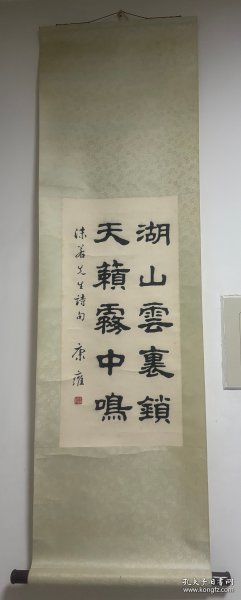 湖山雲裏鎖
天籟霧中鳴
沫若先生詩句
康雍
孔夫子旧书网
www.kongfz.com